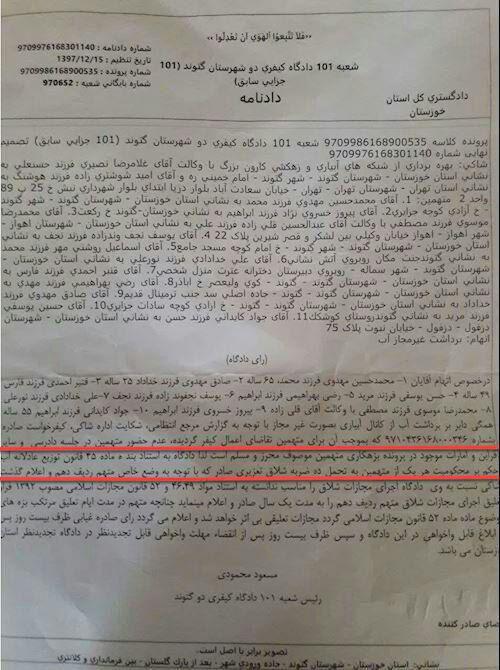 «فَلا تَتَّبِعوُا اَلهَوي اَنْ تَعْدِلُوا»
شماره دادنامه : 9709976168301140
تاریخ تنظیم : 1397/12/15
شماره پرونده : 9709986168900535
شماره بایگاني شعبه : 970652
شعبه 101 دادگاه کیفري دو شهرستان گتوند (101
جزایي سابق)
دادنامه
دادگستري کل استان
خوزستان
پرونده کلاسه 9709986168900535 شعبه 101 دادگاه کیفري دو شهرستان گتوند (101 جزایي سابق) تصمیم
نهایي شماره 9709976168301140
شاکي: بهره برداري از شبکه هاي آبیاري و زهکشي کارون بزرگ با وکالت آقاي غلامرضا نصیري فرزند حسنعلي به
نشاني استان خوزستان - شهرستان گتوند - شهر گتوند - امام خمیني ره و آقاي امید شوشتري زاده فرزند هوشنگ به
نشاني استان تهران - شهرستان تهران - تهران - خیابان سعادت آباد بلوار دریا ابتداي بلوار شهرداري نبش خ 25 پ 89
واحد 2 متهمین: 1. آقاي محمدحسین مهدوي فرزند محمد به نشاني استان خوزستان - شهرستان گتوند - شهر گتوند
- خ آزادي کوچه جزایري2. آقاي پیروز خسروي نژاد فرزند ابراهیم به نشاني خوزستان-گتوند خ رکعت3. آقاي محمدرضا
موسوي فرزند مصطفي با وکالت آقاي عبدالحسین قلي زاده فرزند علي به نشاني استان خوزستان - شهرستان اهواز -
شهر اهواز - اهواز خیابان وکیلي بین لشکر و قصر شیرین پلاک 22 4. آقاي یوسف نجف وندزاده فرزند نجف به نشاني
استان خوزستان - شهرستان گتوند - گتوند - خ امام کوچه مسجد جامع5. آقاي اسماعیل روشني مهر فرزند محمد
به نشاني گتوندجنت مکان روبروي آتش نشاني6. آقاي علي خدادادي فرزند نورعلي به نشاني استان خوزستان -
شهرستان گتوند - شهر سماله - روبروي دبیرستان دخترانه عترت منزل شخصي7. آقاي قنبر احمدي فرزند فارس به
نشاني استان خوزستان - شهرستان گتوند - گتوند - کوي ولیعصر خ اباذر8. آقاي رضي بهراهیمي فرزند مهدي به
نشاني استان خوزستان - شهرستان گتوند - گتوند - جاده اصلي سد جنب ترمینال قدیم9. آقاي صادق مهدوي فرزند
خداداد به نشاني استان خوزستان - شهرستان گتوند - گتوند - خ آزادي کوچه سادات جزایري10. آقاي حسین یوسفي
فرزند مرید به نشاني گتوندروستاي کوشکك11. آقاي جواد کایدانی فرزند حسن به نشاني استان خوزستان - شهرستان
دزفول - دزفول - خیابان نبوت پلاک 75
اتهام: برداشت غیرمجاز آب
(رأی دادگاه)
درخصوص اتهام آقایان ۱- محمدحسین مهدوی فرزند محمد، ۶۵ ساله ۲- صادق مهدوی فرزند خداداد ۲۵ ساله ۳- قنبر احمدی فرزند فارس
۴۹ ساله ۴- حسن یوسفی فرزند مرید ۵- رضی بهراهیمی فرزند ابراهیم ۶- یوسف نجفوند زاده فرزند نجف ۷- علی خدادادی فرزند نورعلی
۸- محمدرضا موسوی فرزند مصطفی با وکالت آقای قلی زاده ۹- پیروز خسروی فرزند ابراهیم ۱۰- جواد کایدانی فرزند ابراهیم ۵۵ ساله
همگی دایر بر برداشت آب از کانال آبیاری بصورت غیر مجاز با توجه به گزارش مرجع انتظامی، شکایت اداره شاکی
شماره ۹۷۱۰۴۳۶۱۶۸۰۰۰۲۴۶ که بموجب آن برای متهمین تقاضای اعمال کیفر گردیده، عدم حضور متهمین در جلسه دادرسی و سایر
قراین و امارات موجود در پرونده بزهکاری متهمین موصوف محرز و مسلم است لذا دادگاه به استناد بند ه ماده ۴۵ قانون توزیع عادلانه
حکم بر محکومیت هر یک از متهمین به تحمل ده ضربه شلاق تعزیری صادر که با توجه به وضع خاص متهم ردیف دهم و اعلام گذشت
شاکی نسبت به وی دادگاه اجرای مجازات شلاق را مناسب ندانسته به استناد مواد ۴۶،۴۹ و ۵۲ قانون مجازات اسلامی مصوب ۱۳۹۲
تعلیق اجرای مجازات شلاق متهم ردیف دهم را به مدت یک سال صادر و اعلام مینماید چنانچه متهم در مدت ایام تعلیق مرتکب بزه های
موضوع ماده ۵۲ قانون مجازات اسلامی گردد مجازات تعلیقی بی اثر خواهد شد و اعلام می گردد رای صادره غیابی ظرف بیست روز پس
از ابلاغ قابل واخواهی در این دادگاه و سپس ظرف بیست روز پس از انقضاء مهلت واخواهی قابل تجدیدنظر در دادگاه تجدیدنظر استان
خوزستان می باشد.
مسعود محمودی
رئیس شعبه ۱۰۱ دادگاه کیفری دو گتوند
صادر کننده
تصویر برابر با اصل است.
نشاني: استان خوزستان - شهرستان گتوند - جاده ورودي شهر - بعد از پارك گلستان - بین فرمانداري و کلانتري